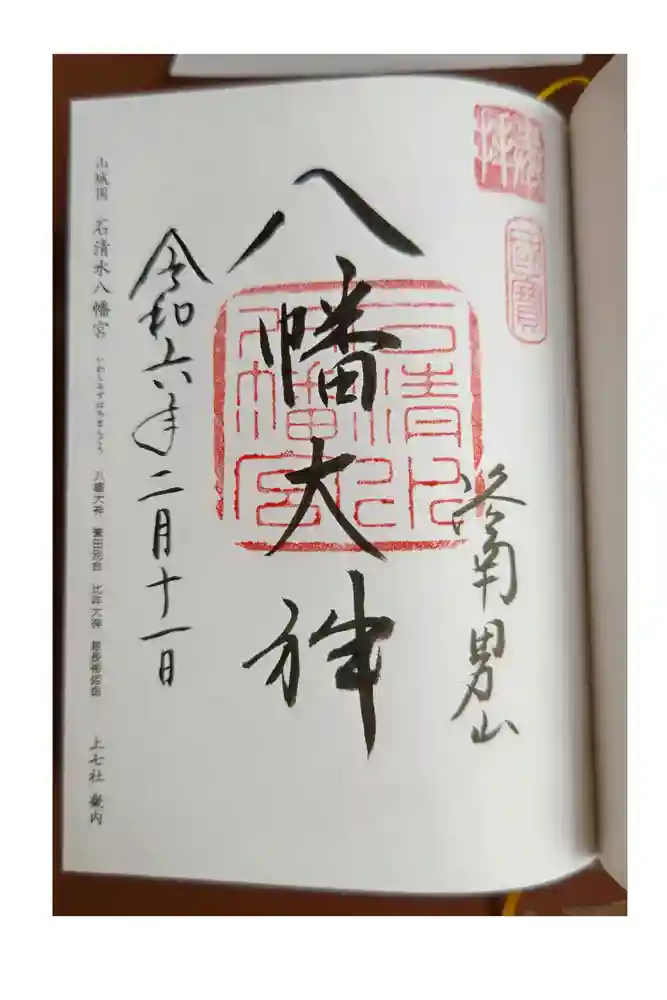 奉拝
國寶
洛南男山
石清水
八幡宮
八幡大神
令和六年二月十一日
山城国 石清水八幡宮 いわしみずはちまんぐう 八幡大神 誉田別命 比咩大神 息長帯姫命 上七社 畿内